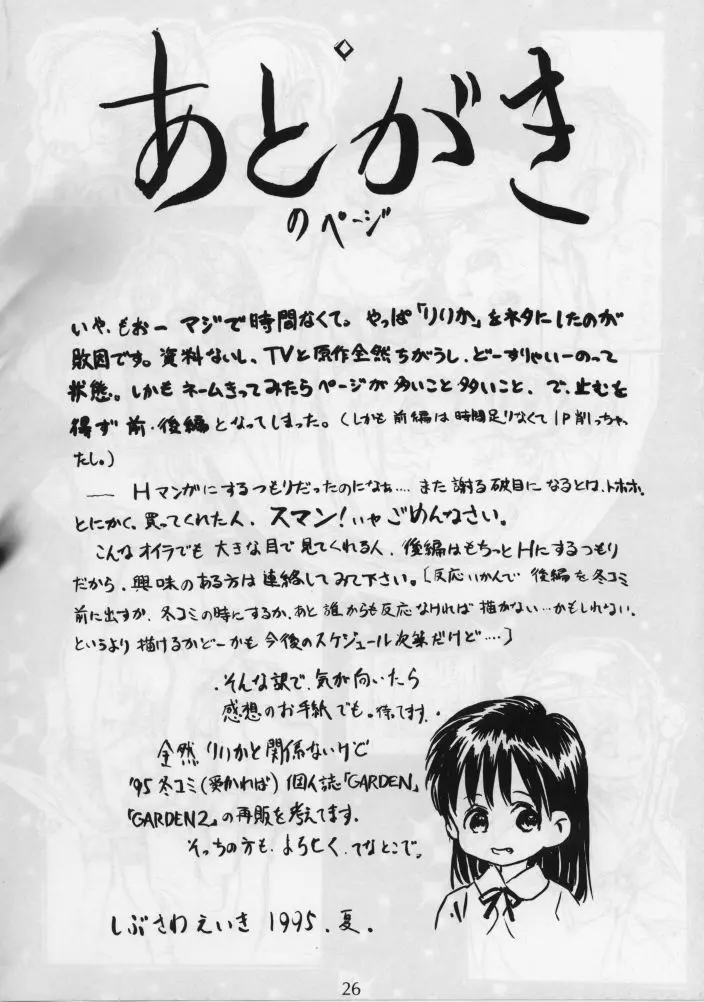 あとがき
のページ
いや、もおー マジで時間なくて。やっぱ「りりか」をネタにしたのが
敗因です。資料ないし、TVと原作全然ちがうし、どーすりゃいーのって
状態。しかもネームきってみたらページが多いこと多いこと、で、止むを
得ず前・後編となってしまった。(しかも前編は時間足りなくて1P削っちゃっ
たし。)
― Hマンガにするつもりだったのになぁ…. また謝る破目になるとは、トホホ。
とにかく、買ってくれた人、スマン!いやごめんなさい。
こんなオイラでも大きな目で見てくれる人、後編はもちっとHにするつもり
だから、興味のある方は連絡してみて下さい。[反応いかんで後編を冬コミ
前に出すか、冬コミの時にするか、あと誰からも反応なければ描かない…かもしれない。
というより描けるかどーかも今後のスケジュール次第だけど….]
．そんな訳で、気が向いたら
感想のお手紙でも。待てます．．
全然りりかと関係ないけど
'95冬コミ(受かれば)個人誌「GARDEN」
「GARDEN2」の再販を考えてます．
そっちの方も、よろしく．てなとこで。
しぶさわえいき 1995．夏．
26